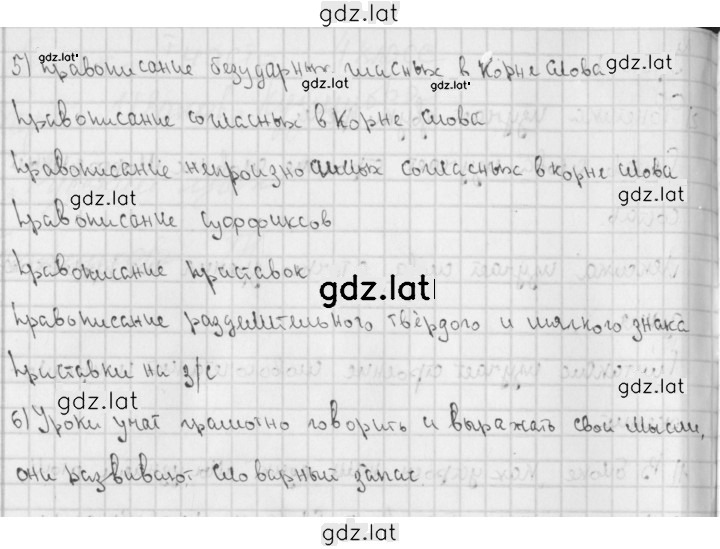 gdz.lat
5) Правописание безударных гласных в корне слова
gdz.lat
gdz.lat
gdz.lat
gdz.lat
Правописание согласных в корне слова
Правописание непроизносимых согласных в корне слова
gdz.lat
gdz.lat
Правописание суффиксов
Правописание приставок
gdz.lat
Правописание разделительного твёрдого и мягкого знака
Приставки на з/с
gdz.lat
gdz.lat
6) Уроки учат грамотно говорить и выражать свои мысли,
они развивают словарный запас
gdz.lat